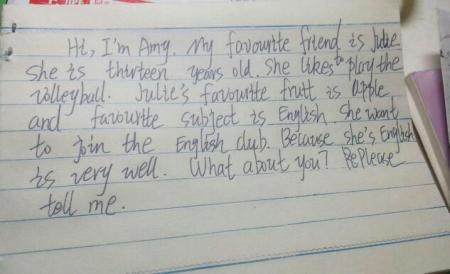 Hi, I'm Amy. My favourite friend is Julie
She is thirteen years old. She likes to play the
volleyball. Julie's favourite fruit is apple
and favourite subject is English. She want
to join the English club. Because she's English
is very well. What about you? Please
tell me.